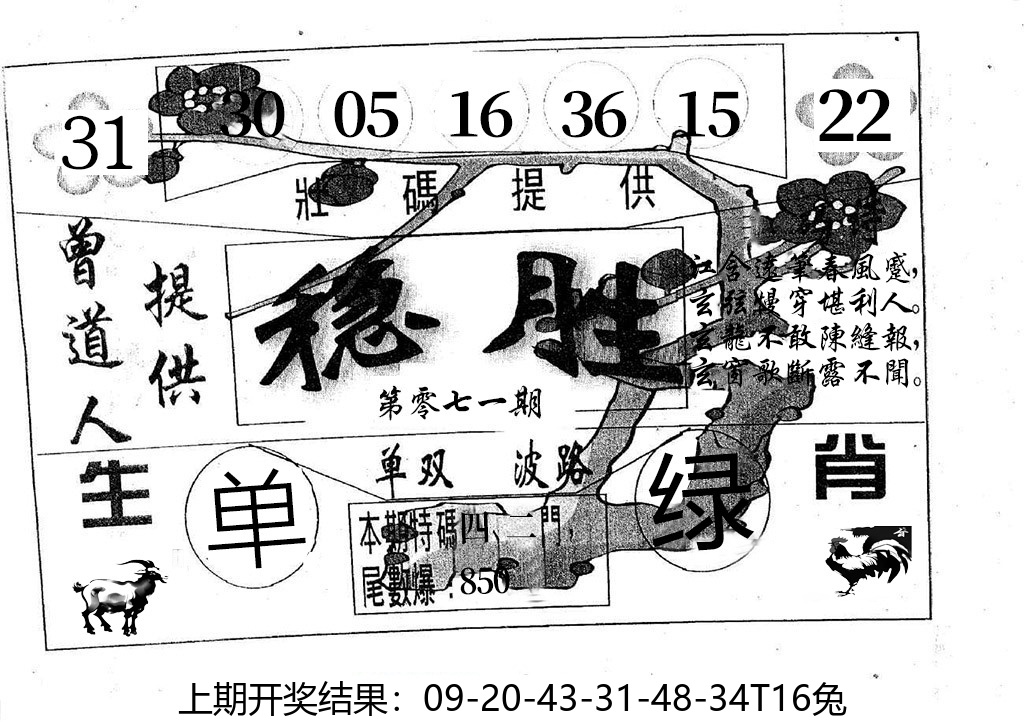 31 30 05 16 36 15 22
壯碼提供
特
曾道人
提供
稳胜
第零七一期
江含遠筆春風蹙,
玄弦轉穿堪利人。
玄龍不敢陳縫報,
玄窗歌斷露不聞。
单双 波路
生肖
单
绿
本期特碼四、二門,
尾數爆:850
上期开奖结果：09-20-43-31-48-34T16兔